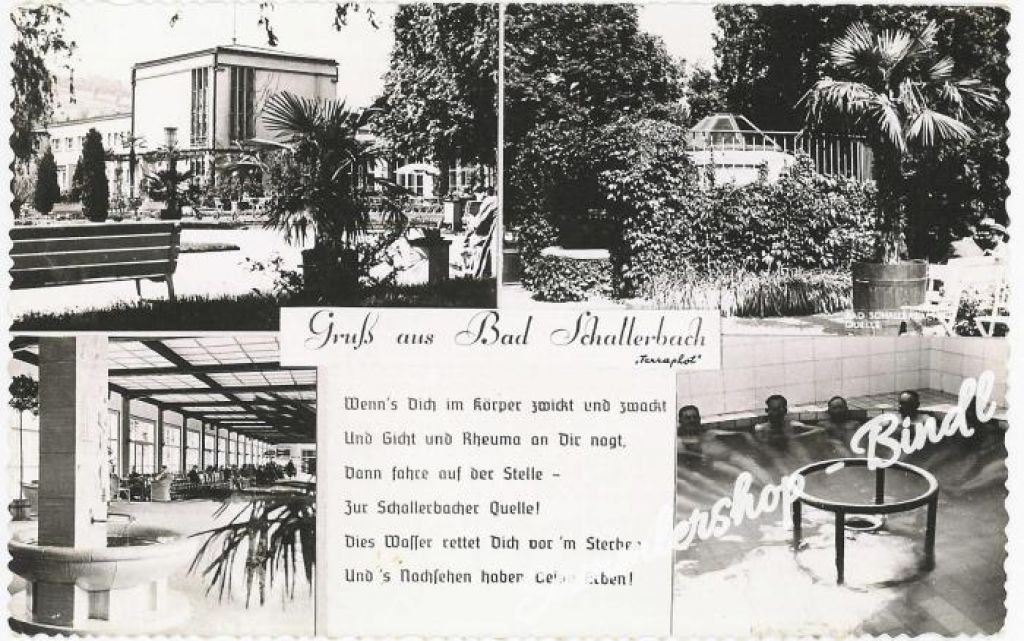 Gruß aus Bad Schallerbach
"Terraplot"
BAD SCHALLERBACH
QUELLE
Wenn's Dich im Körper zwickt und zwackt
Und Gicht und Rheuma an Dir nagt,
Dann fahre auf der Stelle –
Zur Schallerbacher Quelle!
Dies Wasser rettet Dich vor 'm
Und 's Nachsehen haben
ershop - Bindl